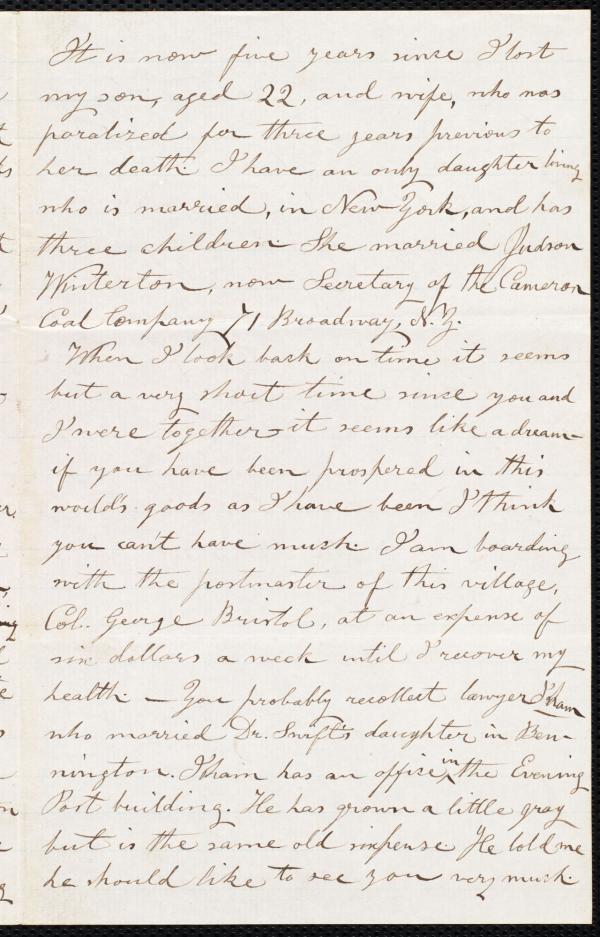 It is now five years since I lost
my son, aged 22, and wife, who was
paralized for three years previous to
her death. I have an only daughter living
who is married, in New York, and has
three children. She married Judson
Winterton, now Secretary of the Cameron
Coal Company 71 Broadway, N.Y.
When I look back on time it seems
but a very short time since you and
I were together - it seems like a dream -
if you have been prospered in this
world's goods as I have been I think
you can't have much. I am boarding
with the postmaster of this village,
Col. George Bristol, at an expense of
six dollars a week until I recover my
health. — You probably recollect lawyer Isham
who married Dr. Swift's daughter in Ben-
nington. Isham has an office in the Evening
Post building. He has grown a little gray
but is the same old sixpense. He told me
he should like to see you very much.